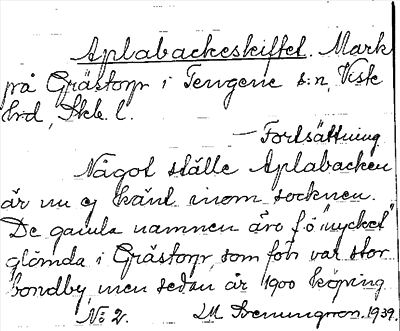 Aplabackeskiftet. Mark
på Grästorp i Tengene s:n, Viste
hrd, Skb. l.
— Fortsättning
Något ställe Aplabacken
är nu ej känt inom socknen.
De gamla namnen äro f ö "mycket"
glömda i Grästorp, som förr var stor
bondby, men sedan år 1900 köping
No 2. 1939.